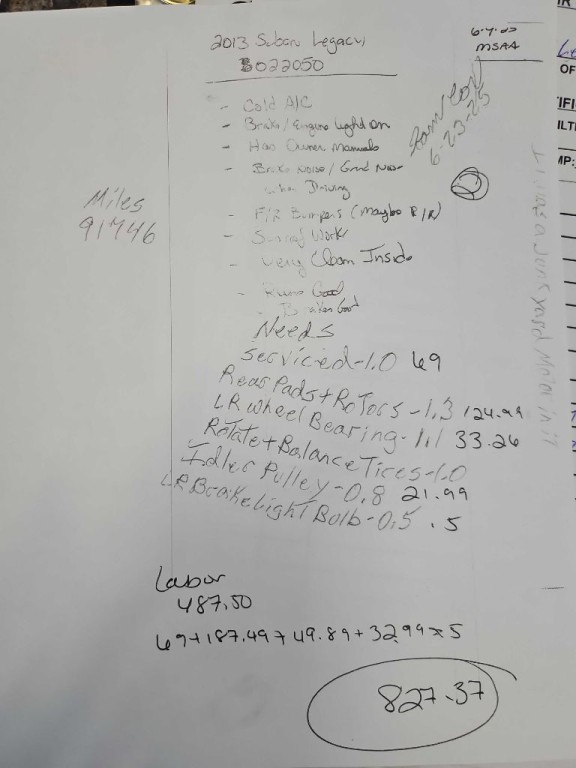 2013 Subaru Legacy
B022050
6-7-25
MSAA
- Cold A/C
- Brake/Engine Light on
- Has Owner Manuals
- Brake Noise/Grind Noise
when Driving
- F/R Bumpers (maybe R/R)
- Sunroof Work
- Very Clean Inside
- Runs Good
- Brakes Good
6-23-25
Miles
91746
Needs
Serviced-1.0 69
Rear Pads+Rotors-1.3 124.99
LR Wheel Bearing-1.1 33.26
Rotate+Balance Tires-1.0
Idler Pulley-0.8 21.99
LR Brake Light Bolb-0.5 .5
It has a Junk yard Motor in it
Labor
487.50
69+187.49+49.89+32.99+5
827.37
OF